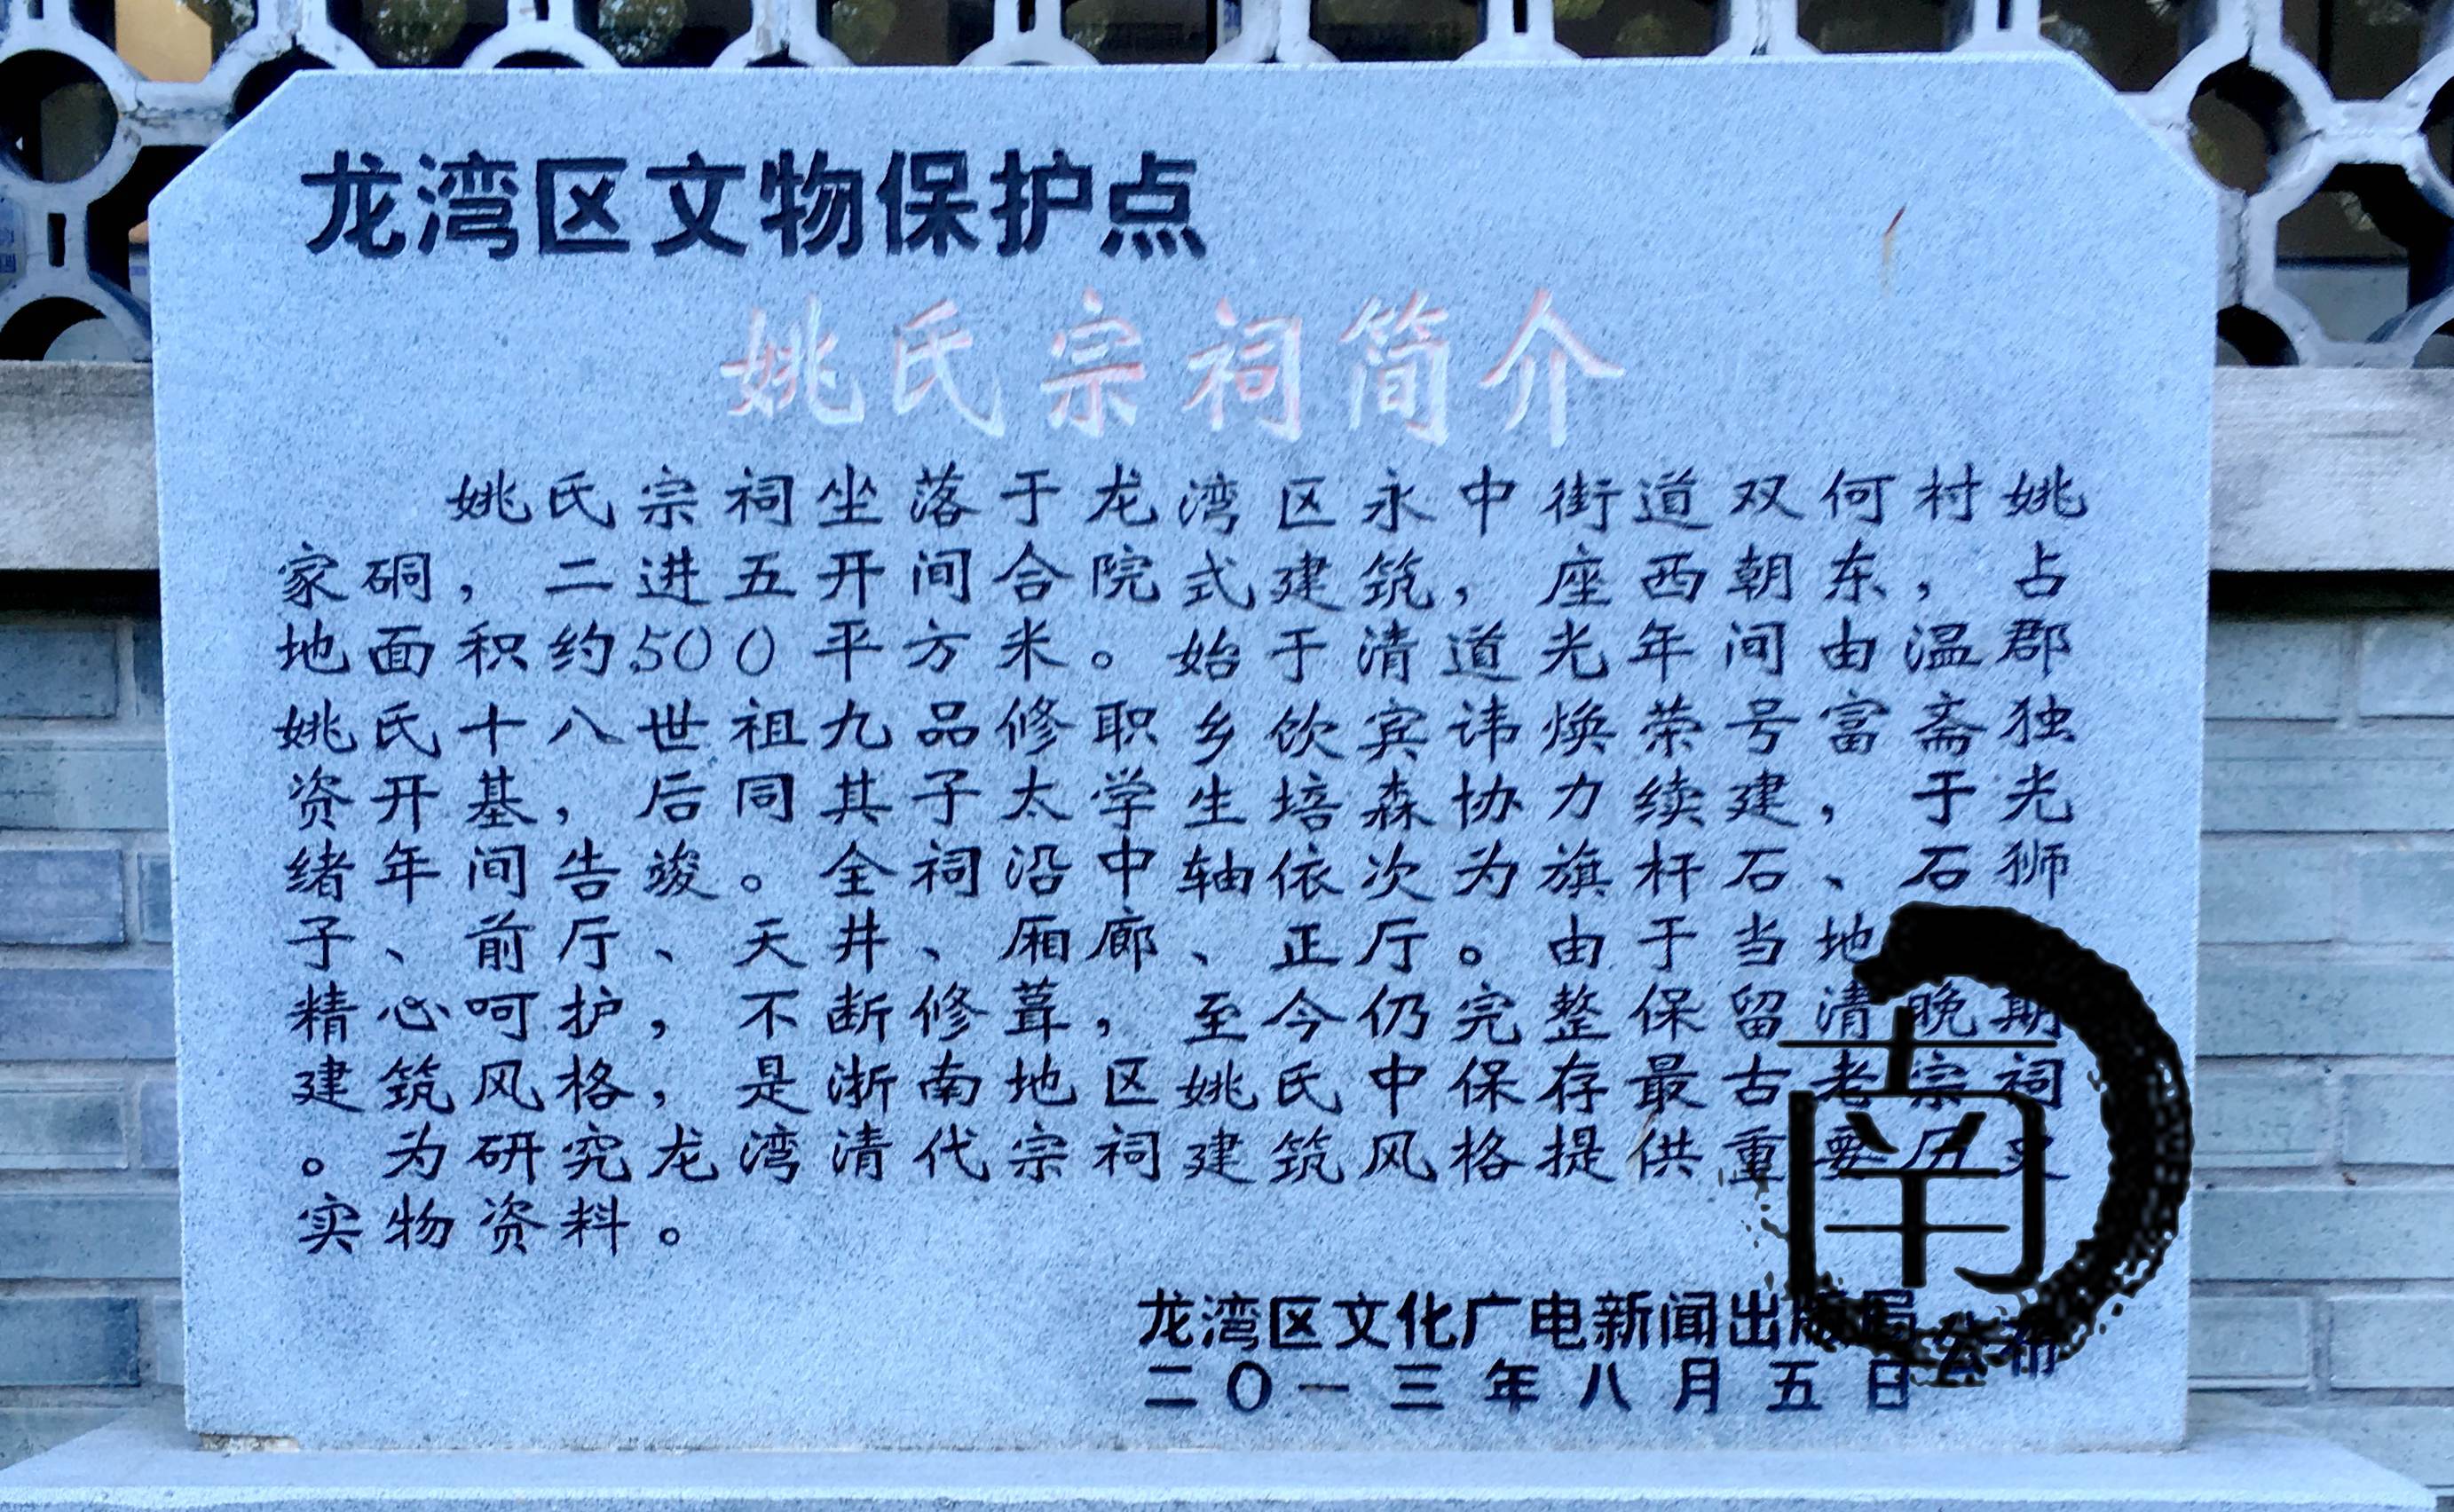 龙湾区文物保护点
姚氏宗祠简介
姚氏宗祠坐落于龙湾区永中街道双何村姚
家硐，二进五开间合院式建筑，座西朝东，占
地面积约500平方米。始于清道光年间由温郡
姚氏十八世祖九品修职乡饮宾讳焕荣号富斋独
资开基，后同其子太学生培森协力续建，于光
绪年间告竣。全祠沿中轴依次为旗杆石、石狮
子、前厅、天井、厢廊、正厅。由于当地
精心呵护，不断修葺，至今仍完整保留清晚期
建筑风格，是浙南地区姚氏中保存最古老宗祠
。为研究龙湾清代宗祠建筑风格提供重要历史
实物资料。
龙湾区文化广电新闻出版局
公布
二〇一三年八月五日
南